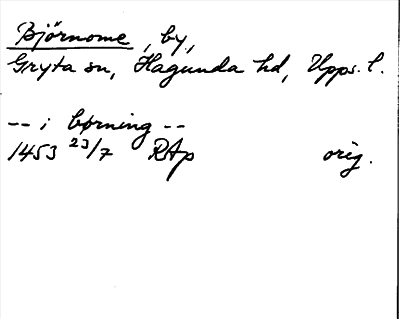 Björnome, by,
Gryta sn, Hagunda hd, Upps. l.
-- i børning --
1453 23/7 RAp orig.